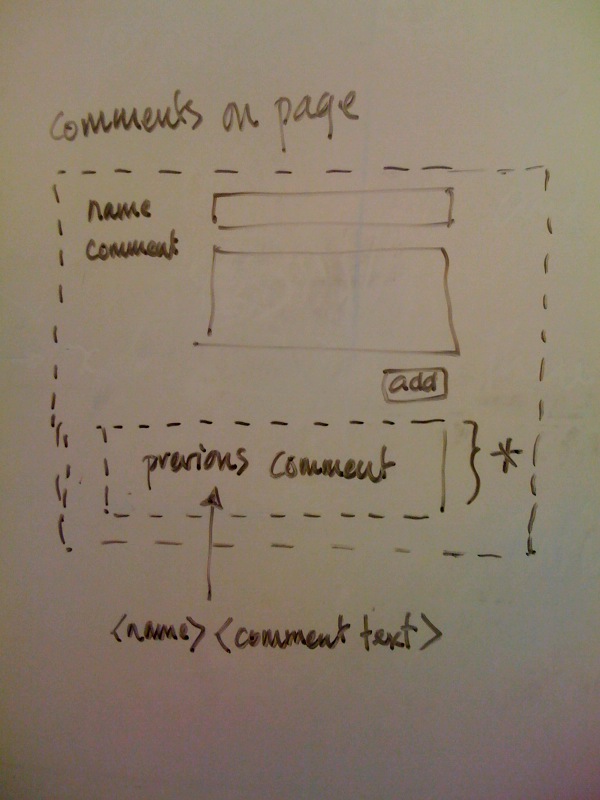 comments on page
name
comment
add
previous comment } *
<name> <comment text>